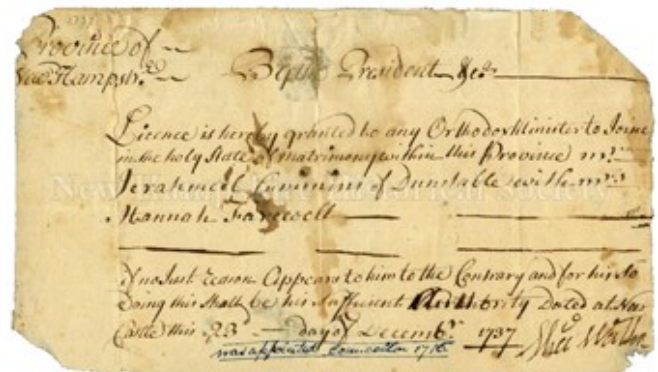 Province of
New Hampshr.
By the President &c.
Licence is hereby granted to any Orthodox Minister to Joine
in the holy State of matrimony within this Province mr.
Jerahmeel Cummins of Dunstable with mrs
Hannah Farewell
if no Just reason Appears to him to the Contrary and for his so
Doing this Shall be his sufficient Authority Dated at New
Castle this 23 day of Decembr. 1737
was appointed Councillor 1716
New Hampshire Historical Society